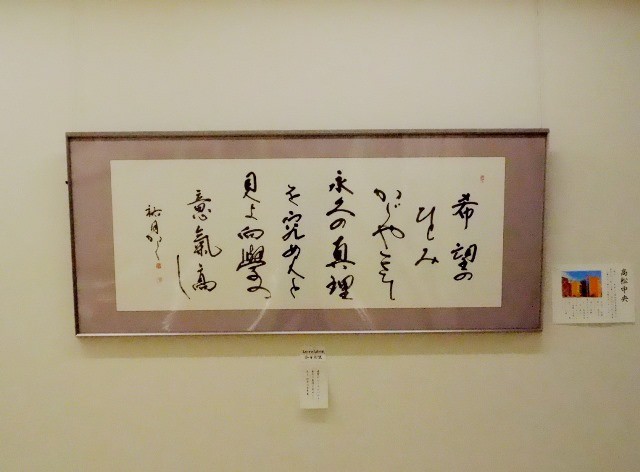 希望の
ひとみ
かがやきて
永久の真理
を究めんと
見よ向學の
意氣高し
祐月かく
高松中央